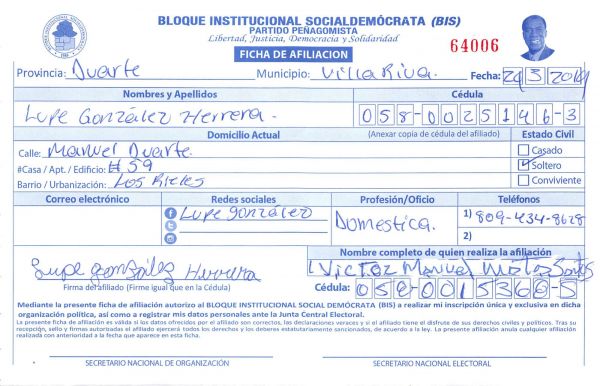 BLOQUE INSTITUCIONAL SOCIALDEMÓCRATA (BIS)
PARTIDO PEÑAGOMISTA
Libertad, Justicia, Democracia y Solidaridad
FICHA DE AFILIACION
64006
Provincia: Duarte Municipio: Villa Riva. Fecha: 29/3/2019
Nombres y Apellidos Cédula
Lupe González Herrera. 058-0025146-3
Domicilio Actual (Anexar copia de cédula del afiliado) Estado Civil
Calle: Manuel Duarte. Casado
#Casa / Apt. / Edificio: #59 Soltero
Barrio / Urbanización: Los Rieles Conviviente
Correo electrónico Redes sociales Profesión/Oficio Teléfonos
Lupe gonzález Domestica. 1) 809-434-8628
2)
Nombre completo de quien realiza la afiliación
Lupe gonzález Herrera Victor Manuel Santos
Firma del afiliado (Firme igual que en la Cédula) Cédula: 058-0015360-5
Mediante la presente ficha de afiliación autorizo al BLOQUE INSTITUCIONAL SOCIAL DEMÓCRATA (BIS) a realizar mi inscripción única y exclusiva en dicha
organización política, así como a registrar mis datos personales ante la Junta Central Electoral.
La presente ficha de afiliación es válida si los datos ofrecidos por el afiliado son correctos, las declaraciones veraces y si el afiliado tiene el disfrute de sus derechos civiles y políticos. Tras su
recepción, sello y firmas autorizadas el afiliado ejercerá todos los derechos y los deberes estatutariamente sancionados, de acuerdo a la ley. La presente afiliación anula cualquier afiliación
realizada con anterioridad a la fecha que aparece en esta ficha.
SECRETARIO NACIONAL DE ORGANIZACIÓN SECRETARIO NACIONAL ELECTORAL